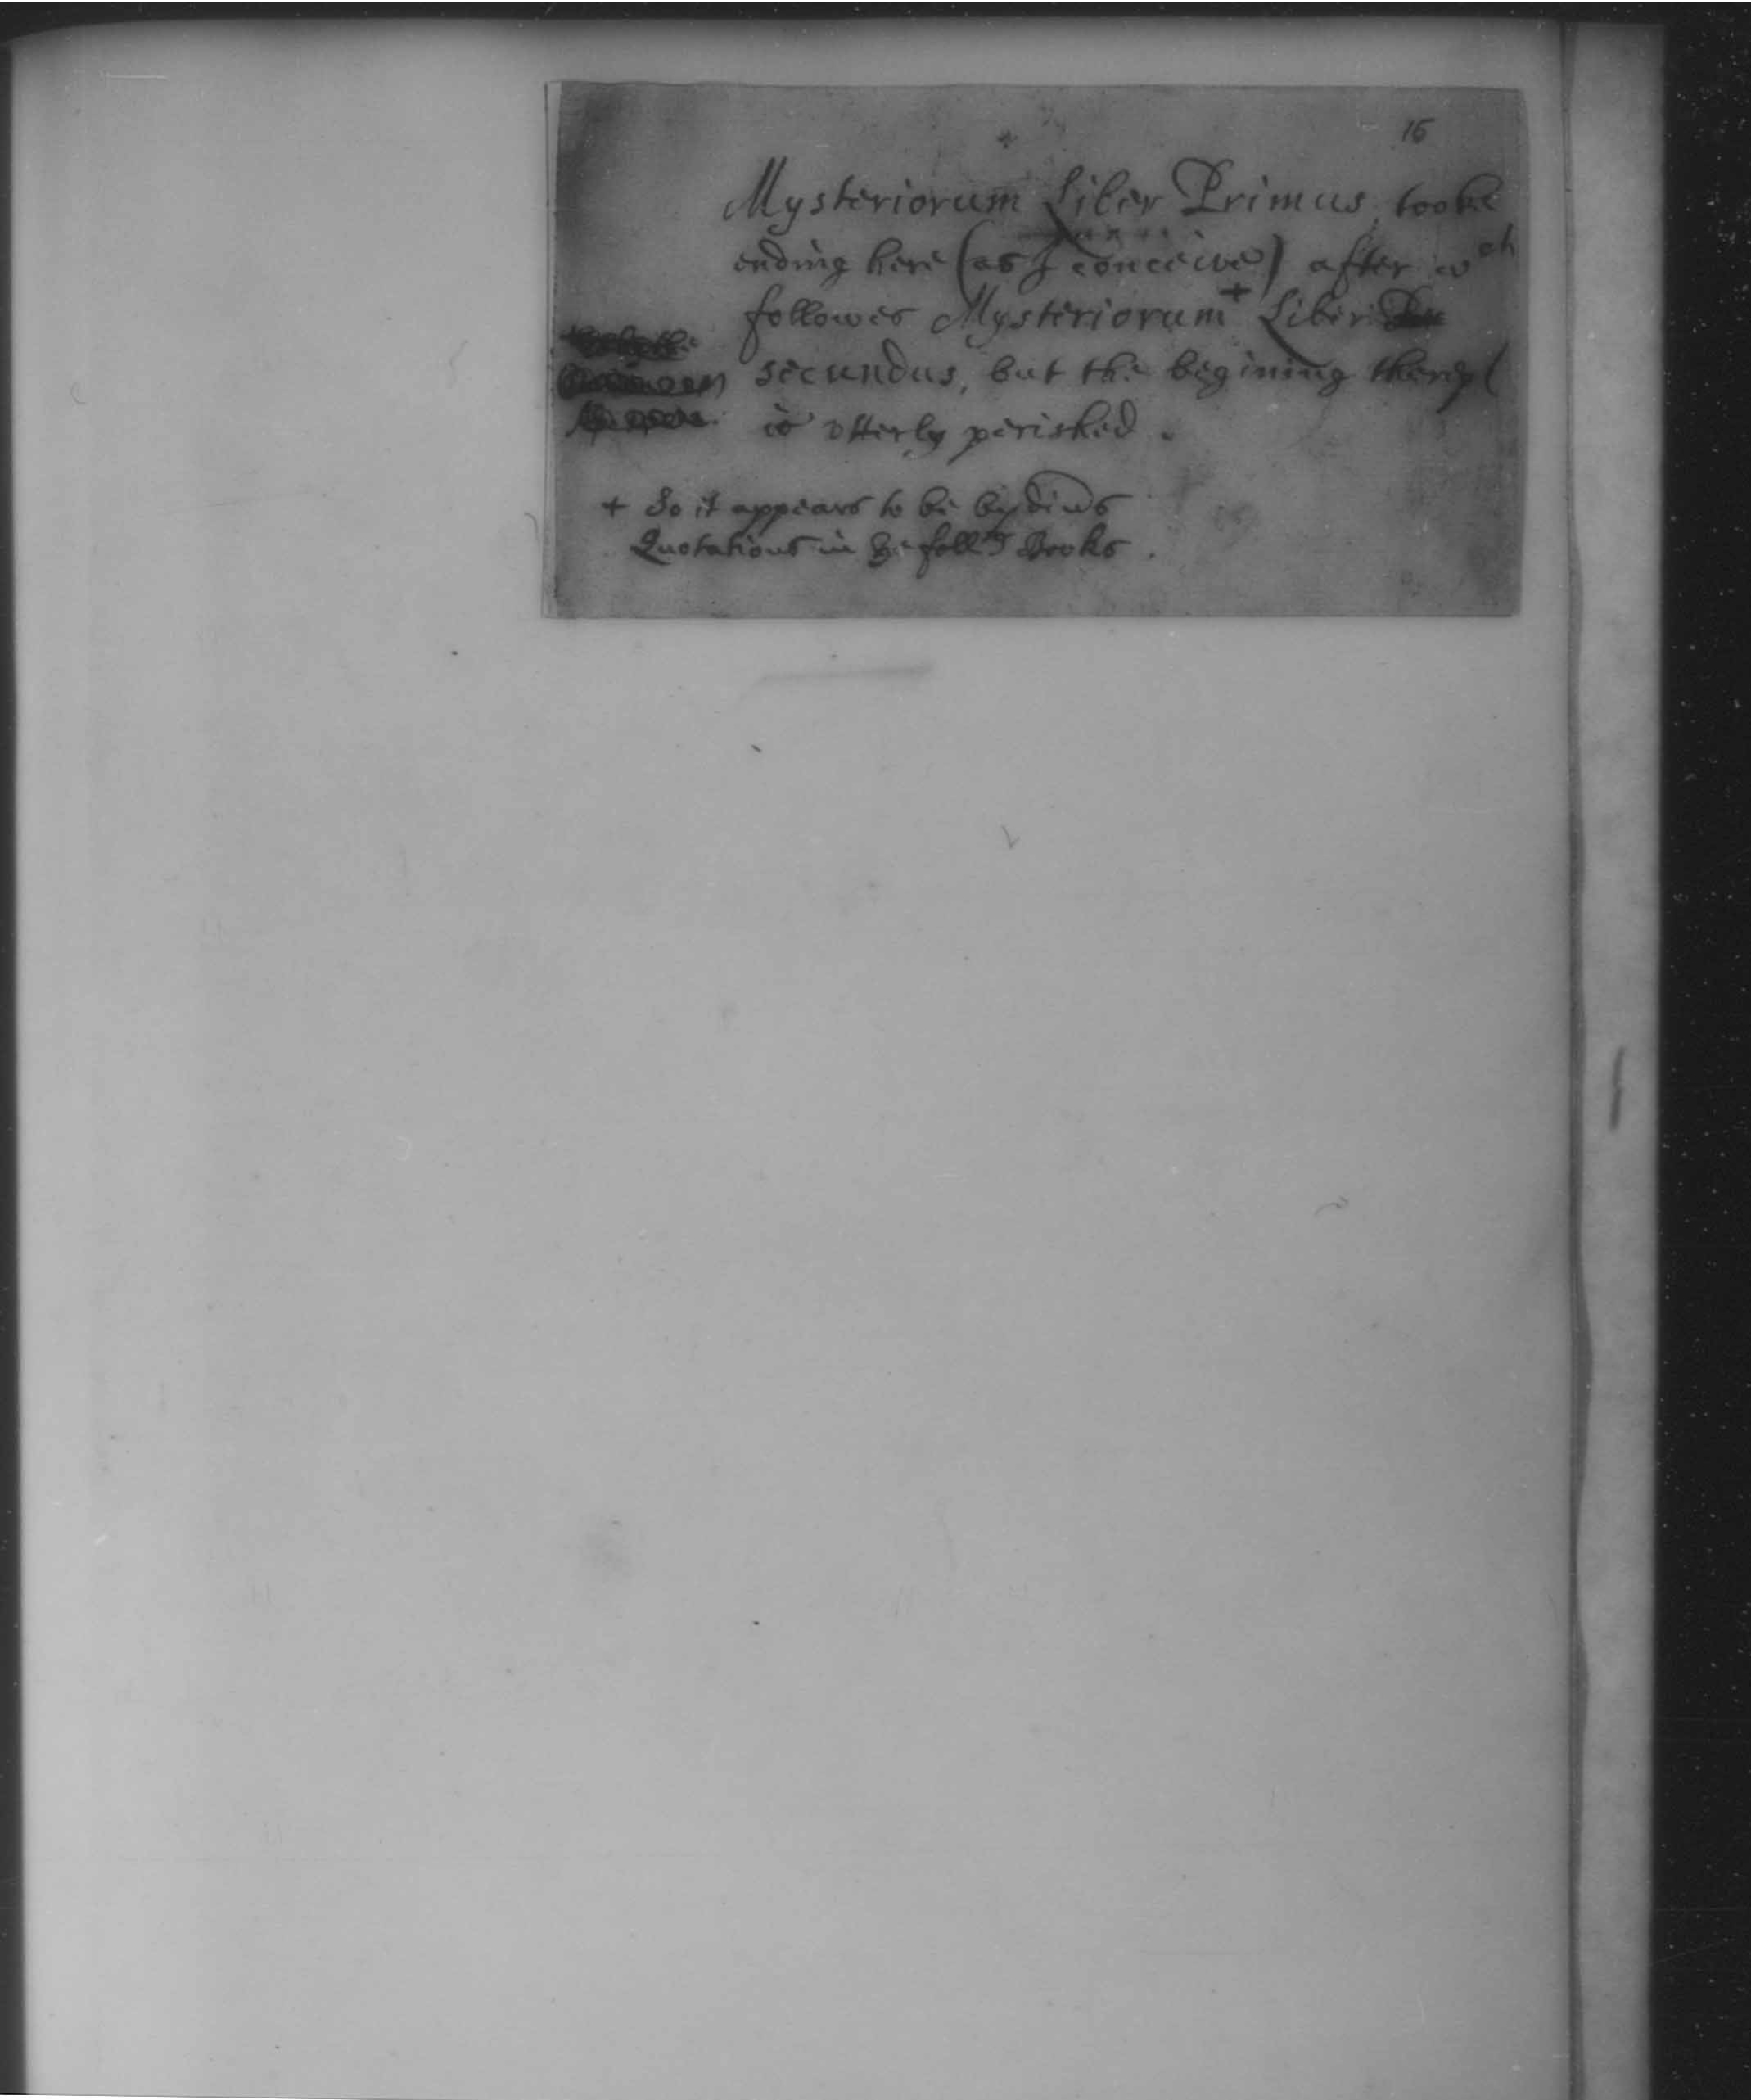 16
Mysteriorum Liber Primus, tooke
ending here (as I conceive) after wch
followes Mysteriorum + Liber
secundus, but the begining therof
is vtterly perished.
+ So it appears to be by divs
Quotations in ye follg Books.